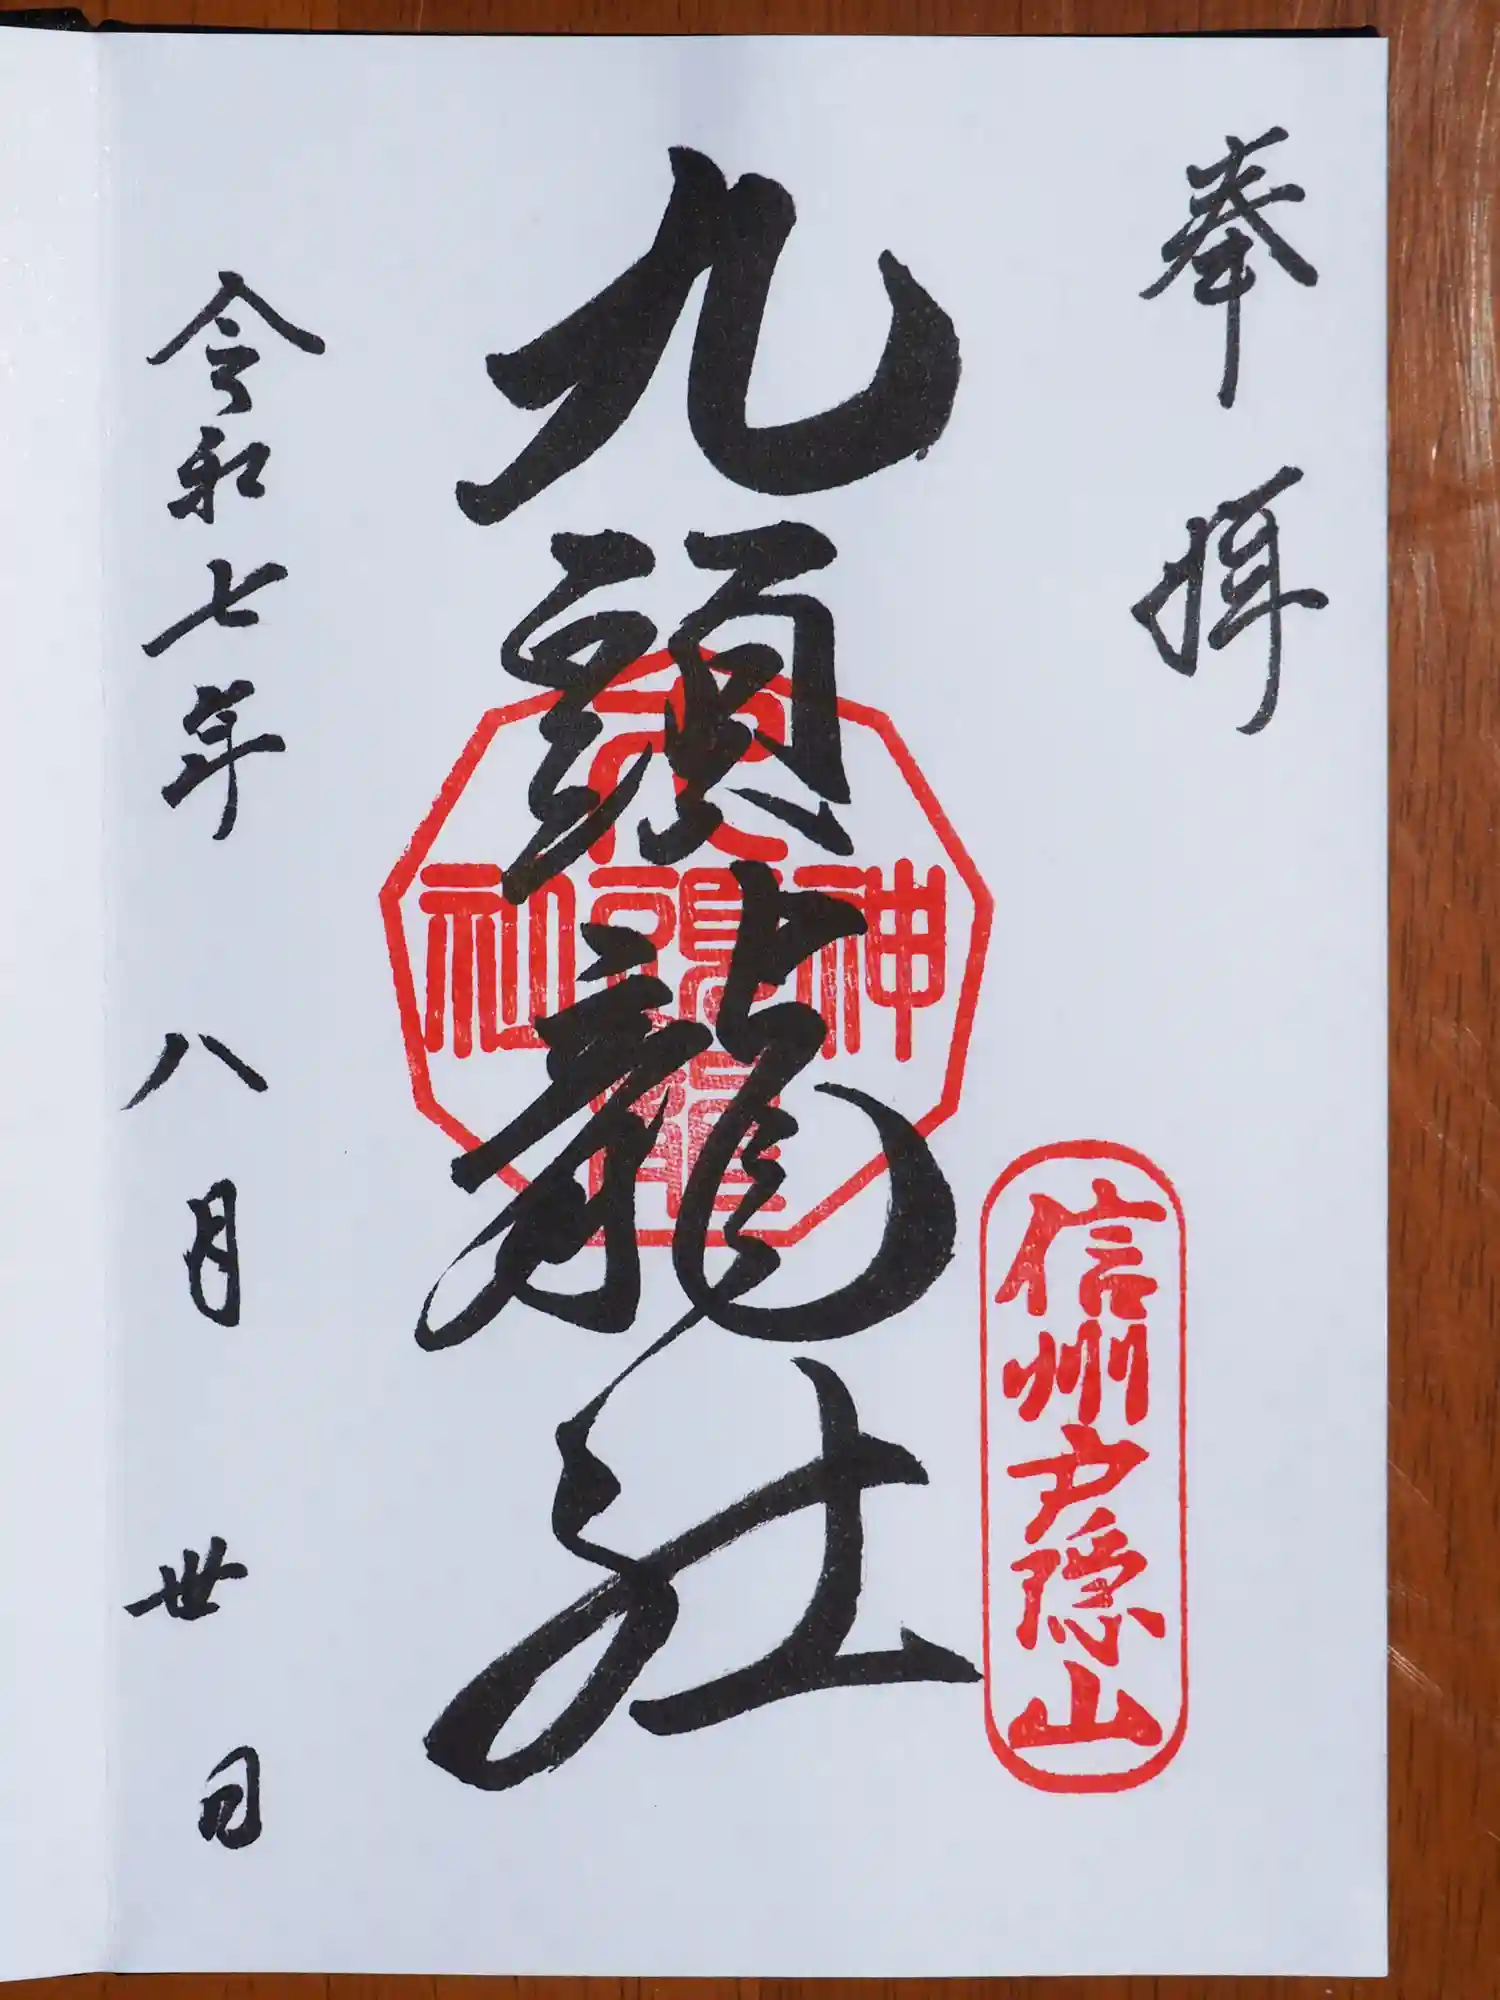 奉拝
信州戸隠山
九頭龍社
九頭龍神社
令和七年八月丗日